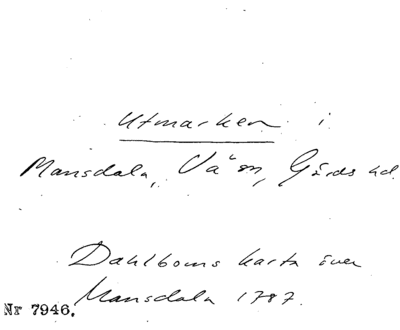 Utmarken i
Mansdala, Vä sn, Gärds hd.
Dahlboms karta över
Mansdala 1787.
Nr 7946.